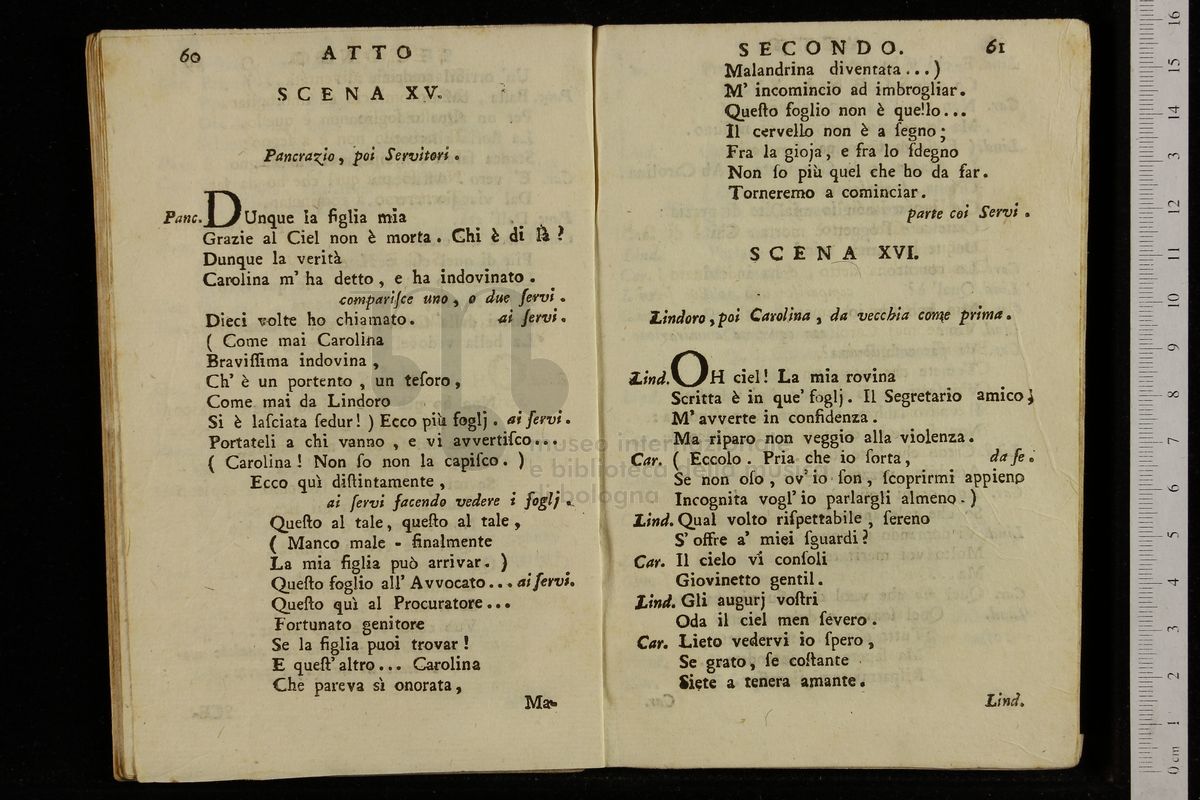 60 ATTO
SCENA XV.
Pancrazio, poi Servitori.
Panc. DUnque la figlia mia
Grazie al Ciel non è morta. Chi è di là?
Dunque la verità
Carolina m' ha detto, e ha indovinato.
compariſce uno, o due ſervi.
Dieci volte ho chiamato. ai ſervi.
( Come mai Carolina
Braviſſima indovina,
Ch' è un portento, un teſoro,
Come mai da Lindoro
Si è laſciata ſedur! ) Ecco più foglj. ai ſervi.
Portateli a chi vanno, e vi avvertiſco...
( Carolina! Non ſo non la capiſco. )
Ecco quì diſtintamente,
ai ſervi facendo vedere i foglj.
Queſto al tale, queſto al tale,
( Manco male - finalmente
La mia figlia può arrivar. )
Queſto foglio all' Avvocato... ai ſervi.
Queſto quì al Procuratore...
Fortunato genitore
Se la figlia puoi trovar!
E queſt' altro... Carolina
Che pareva sì onorata,
Ma-
SECONDO. 61
Malandrina diventata...)
M' incomincio ad imbrogliar.
Queſto foglio non è quello...
Il cervello non è a ſegno;
Fra la gioja, e fra lo ſdegno
Non ſo più quel che ho da far.
Torneremo a cominciar.
parte coi Servi.
SCENA XVI.
Lindoro, poi Carolina, da vecchia come prima.
Lind. OH ciel! La mia rovina
Scritta è in que' foglj. Il Segretario amico;
M' avverte in confidenza.
Ma riparo non veggio alla violenza.
Car. ( Eccolo. Pria che io ſorta, da ſe.
Se non oſo, ov' io ſon, ſcoprirmi appieno
Incognita vogl' io parlargli almeno. )
Lind. Qual volto riſpettabile, ſereno
S' offre a' miei ſguardi?
Car. Il cielo vi conſoli
Giovinetto gentil.
Lind. Gli augurj voſtri
Oda il ciel men ſevero.
Car. Lieto vedervi io ſpero,
Se grato, ſe coſtante
Siete a tenera amante.
Lind.
museo internazionale
e biblioteca della musica
di bologna
0 cm 1 2 3 4 5 6 7 8 9 10 11 12 13 14 15 16